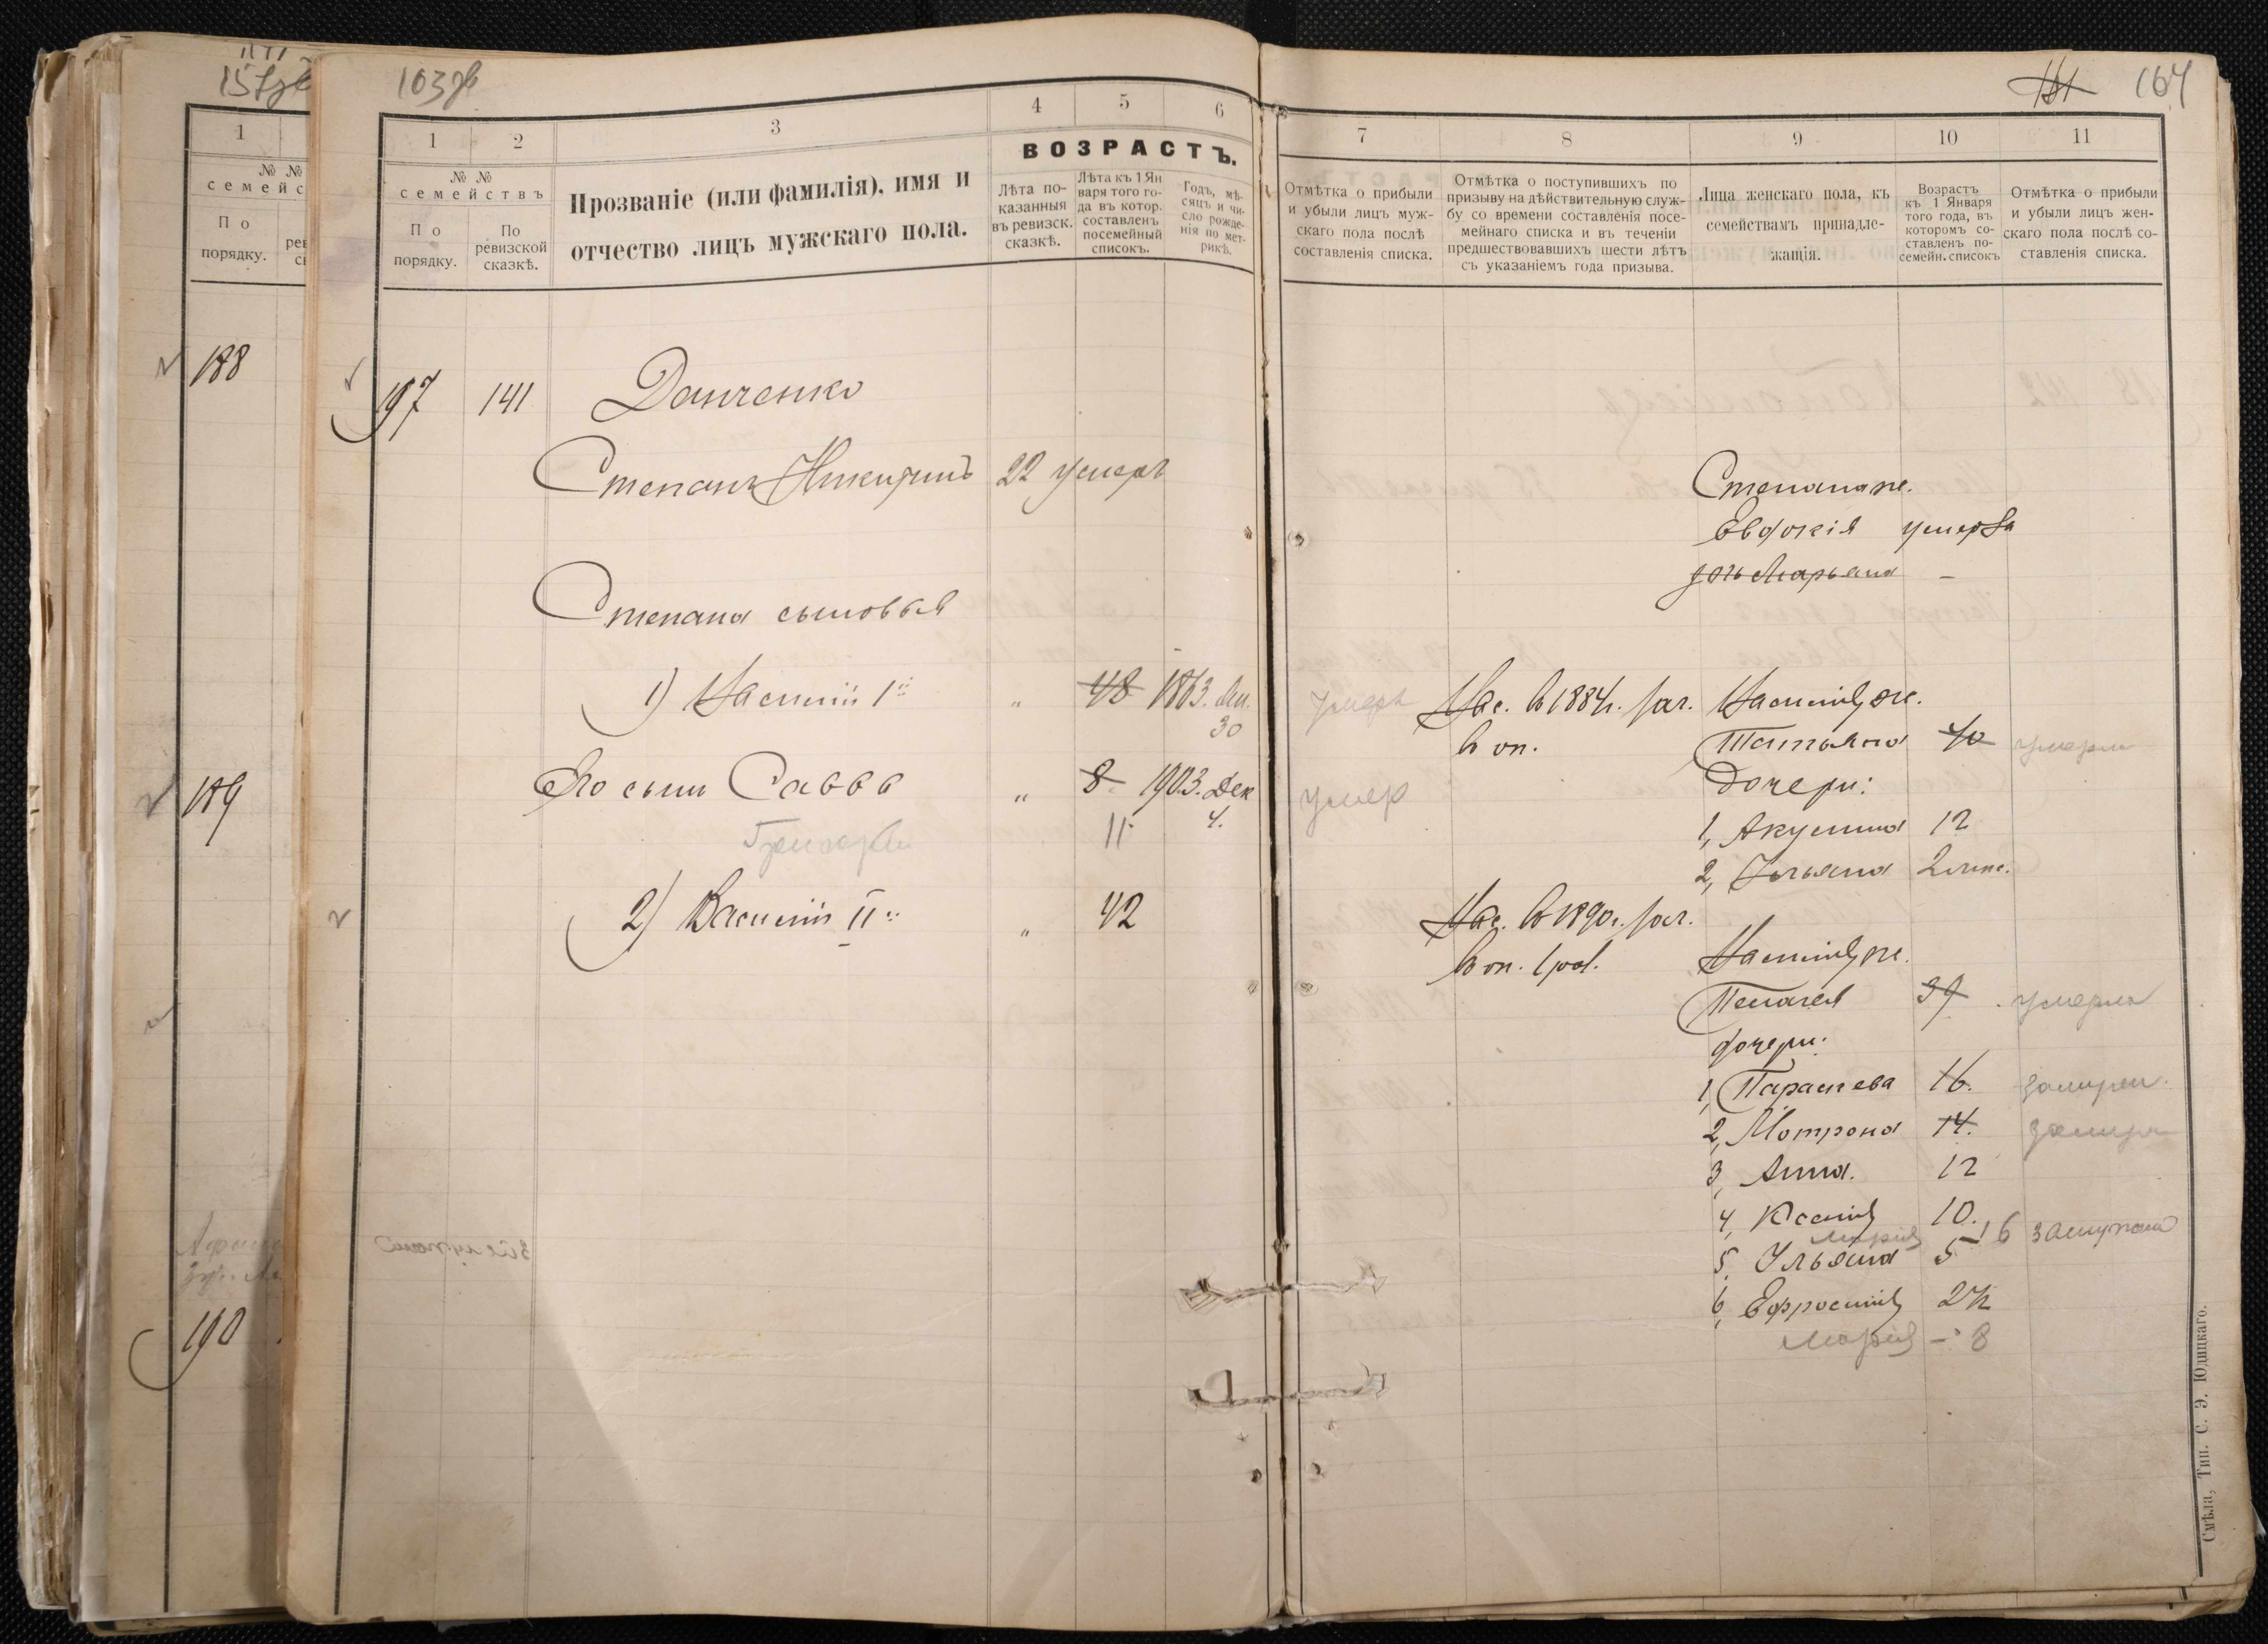 188
189
190
1
№ №
семейс
По
порядку.
103
1
2
3
4
5
6
№ №
семействъ
По
порядку.
По
ревизской
сказкѣ.
Прозваніе (или фамилія), имя и
отчество лицъ мужскаго пола.
ВОЗРАСТЪ.
Лѣта по-
казанныя
въ ревизск.
сказкѣ.
Лѣта къ 1 Ян
варя того го-
да въ котор.
составленъ
посемейный
списокъ.
Годъ, мѣ-
сяцъ и чи-
сло рожде-
нія по мет-
рикѣ.
197 141 Данченко
Степанъ Никитинъ 22 умеръ
Степана сыновья
1) Василій 1й " 48 1863. 30
Его сынъ Савва " 8 1903. Дек 4.
Григорій 11
2) Василій IIй " 42
164
7
8
9
10
11
Отмѣтка о прибыли
и убыли лицъ муж-
скаго пола послѣ
составленія списка.
Отмѣтка о поступившихъ по
призыву на дѣйствительную служ-
бу со времени составленія посе-
мейнаго списка и въ теченіи
предшествовавшихъ шести лѣтъ
съ указаніемъ года призыва.
Лица женскаго пола, къ
семействамъ принадле-
жащія.
Возрастъ
къ 1 Января
того года, въ
которомъ со-
ставленъ по-
семейн. списокъ
Отмѣтка о прибыли
и убыли лицъ жен-
скаго пола послѣ со-
ставленія списка.
Степана ж.
Евдокія умерла
дочь Марьяна —
умеръ Вас. въ 1884 г. зач. Василія ж.
въ оп. Татьяна 40 умерла
умер Дочери:
1, Акулина 12
2, Ульяна 2 мес.
Вас. въ 1890 г. зач.
въ оп. 1 раз. Василія ж.
Пелагея 39 умерла
дочери:
1, Параскева 16. замужем
2, Мотрона 14. замуж
3, Анна. 12
4, Ксенія 10.
Марія 16 замужем
5, Ульяна 5
6, Ефросинія 2½
Марія — 8
Смѣла, Тип. С. Э. Юдицкаго.